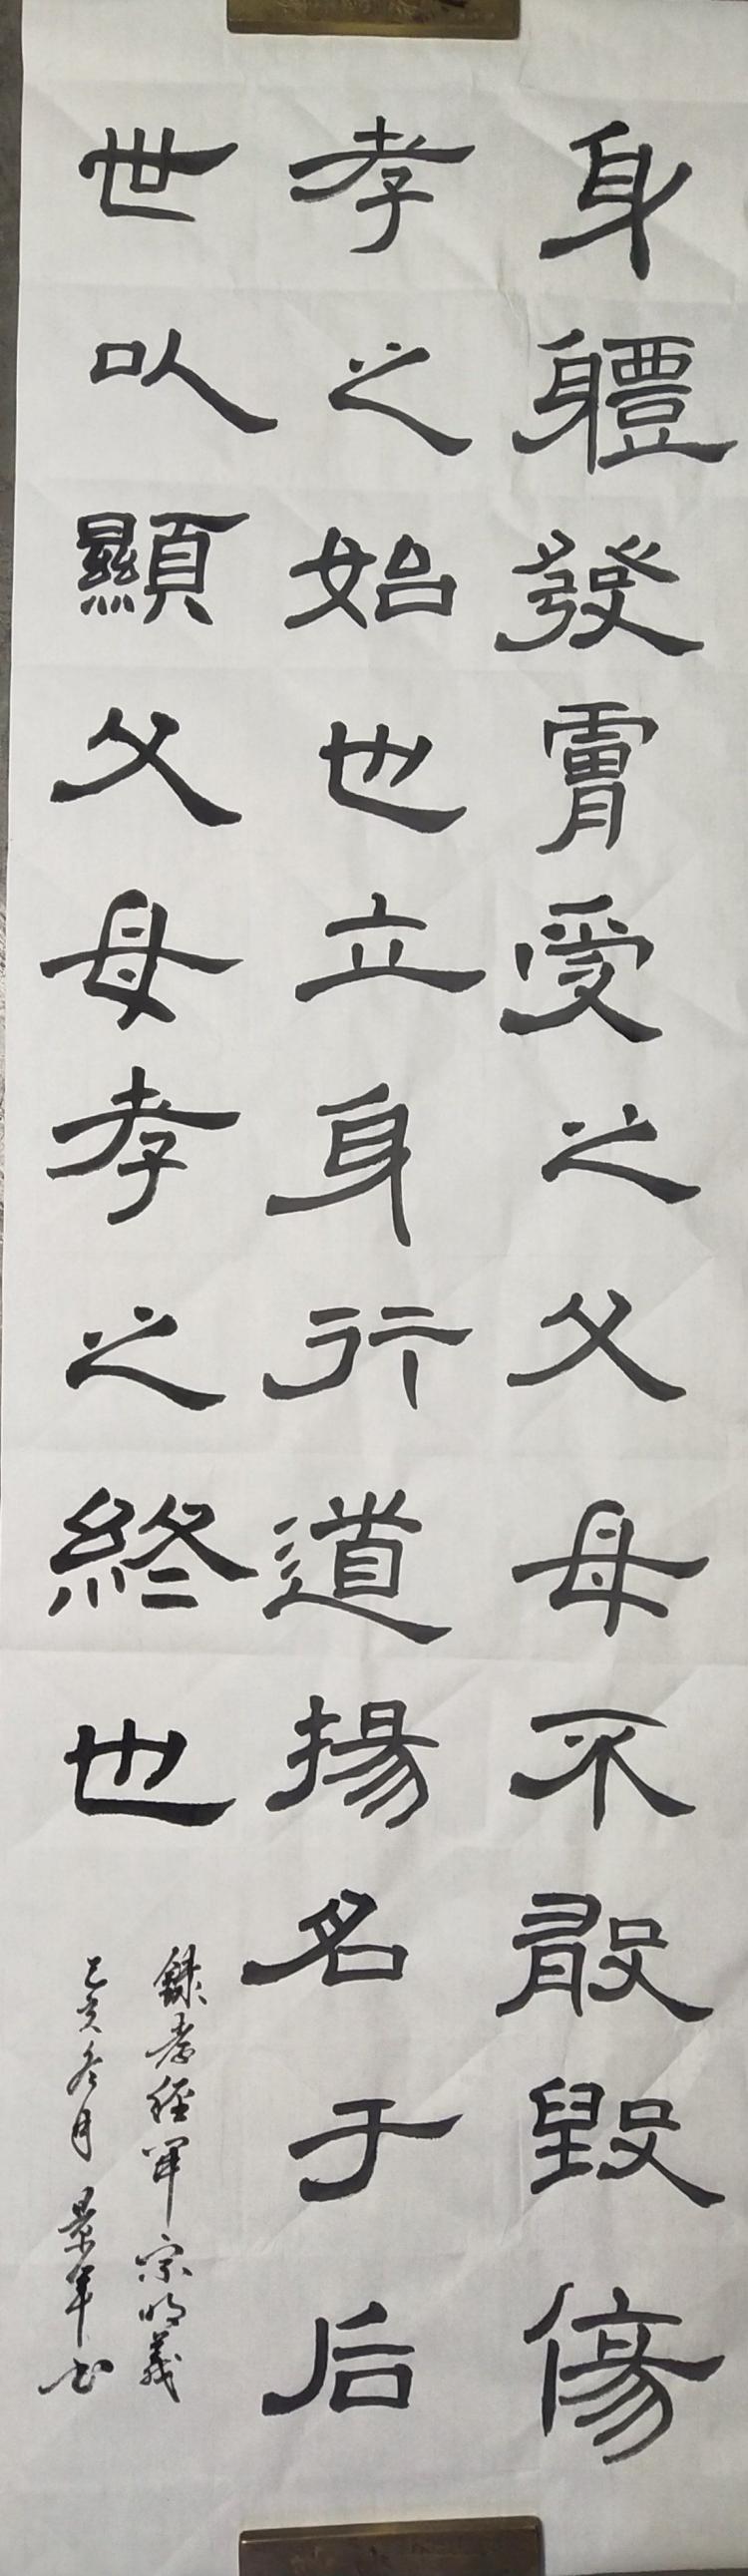 身軆發膚受之父母不敢毀傷
孝之始也立身行道揚名于后
世以顯父母孝之終也
錄孝經開宗明義
己亥冬月 景年书